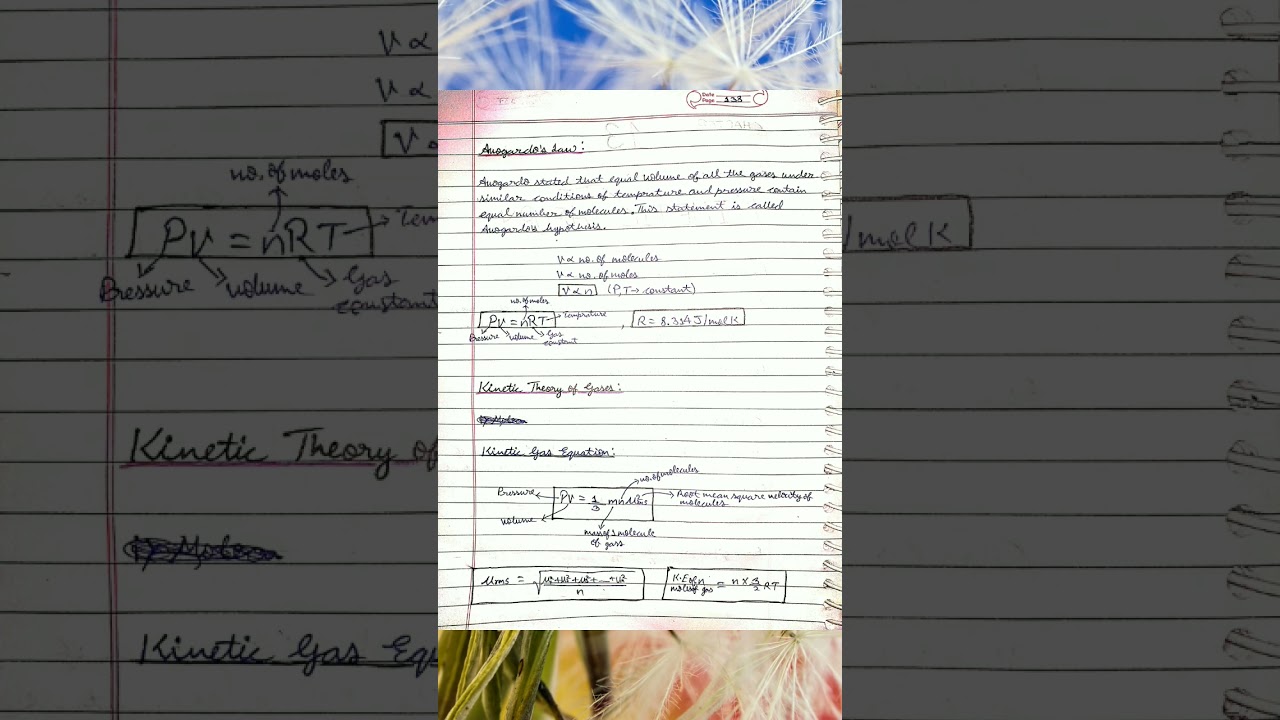 Date
Page 133
Avogardo's Law:
Avogardo stated that equal volume of all the gases under
similar conditions of temprature and pressure contain
equal number of molecules. This statement is called
Avogardo's hypothesis.
V ∝ no. of molecules
V ∝ no. of moles
V ∝ n (P, T → constant)
no. of moles
PV = nRT → Temprature , R = 8.314 J/mol K
Pressure volume Gas
constant
Kinetic Theory of Gases:
Kinetic Gas Equation:
no. of molecules
Pressure PV = 1/3 mnu²rms → Root mean square velocity of
molecules
volume
mass of 1 molecule
of gas
Urms = √ u²+u²+u²+ __ +u² / n
K.E of n moles of gas = n x 3/2 RT
V ∝
V ∝
V ∝
no. of moles
PV = nRT → Tem
/mol K
Pressure volume Gas
constant
Kinetic Theory of
Kinetic Gas Equ